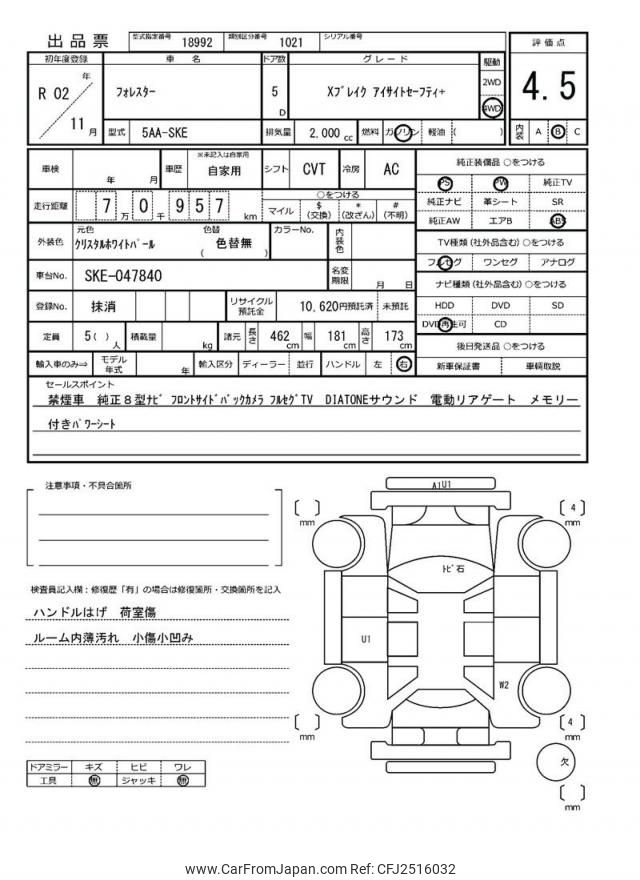 出品票 型式指定番号 18992 類別区分番号 1021 シリアル番号
初年度登録 車名 ドア数 グレード 駆動 評価点
R 02 年 11 月 フォレスター 5 D Xブレイク アイサイトセーフティ+ 2WD 4WD 4.5
型式 5AA-SKE 排気量 2,000 cc 燃料 ガソリン 軽油 ( ) 内装 A B C
車検 年 月 車歴 ※未記入は自家用 自家用 シフト CVT 冷房 AC 純正装備品 ○をつける
PS PW 純正TV
走行距離 7 万 0 千 9 5 7 km ○をつける
マイル $ (交換) * (改ざん) # (不明)
純正ナビ 革シート SR
純正AW エアB ABS
外装色 元色 クリスタルホワイトパール 色替 ( 色替無 ) カラーNo. 内装色
TV種類 (社外品含む) ○をつける
フルセグ ワンセグ アナログ
車台No. SKE-047840 名変期限 月 日
ナビ種類 (社外品含む) ○をつける
登録No. 抹消 リサイクル預託金 10,620円預託済 未預託
HDD DVD SD
DVD再生可 CD
定員 5 ( ) 人 積載量 kg 諸元 長さ 462 cm 幅 181 cm 高さ 173 cm
後日発送品 ○をつける
輸入車のみ⇒ モデル年式 年 輸入区分 ディーラー 並行 ハンドル 左 右
新車保証書 車輌取説
セールスポイント
禁煙車 純正8型ナビ フロントサイドバックカメラ フルセグTV DIATONEサウンド 電動リアゲート メモリー
付きパワーシート
注意事項・不具合箇所
検査員記入欄：修復歴「有」の場合は修復箇所・交換箇所を記入
ハンドルはげ 荷室傷
ルーム内薄汚れ 小傷小凹み
ドアミラー キズ ヒビ ワレ
工具 無 ジャッキ 無
A1U1
[ ] mm
[ 4 ] mm
トビ石
U1
W2
[ ] mm
[ 4 ] mm
欠
[ ] mm
www.CarFromJapan.com Ref: CFJ2516032